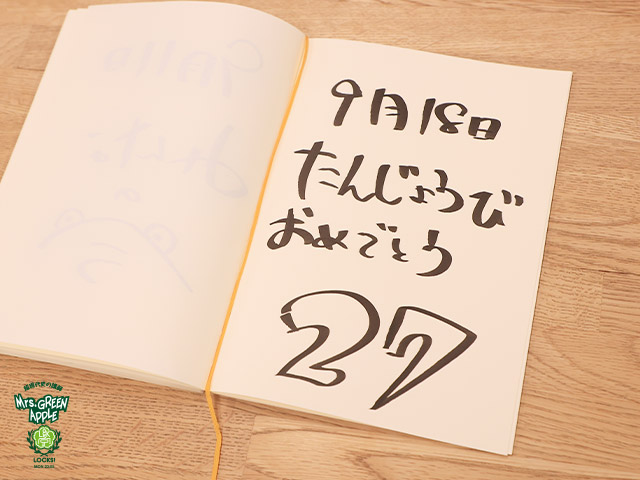 9月18日
たんじょうび
おめでとう
27
Mrs. GREEN
APPLE
LOCKS!